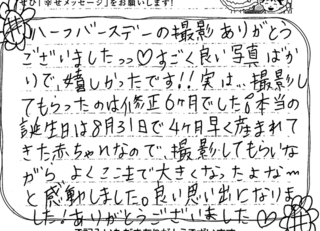 ぜひ「幸せメッセージ」をお願いします!
ハーフバースデーの撮影 ありがとう
ございましたっっ♡すごく良い写真ばか
りで、嬉しかったです!!実は、撮影し
てもらったのは修正6ヶ月でした!本当の
誕生日は8月31日で4ヶ月早く産まれて
きた赤ちゃんなので、撮影してもらいな
がら、よくここまで大きくなったよな〜
と感動しました。良い思い出になりま
した!ありがとうございました♡